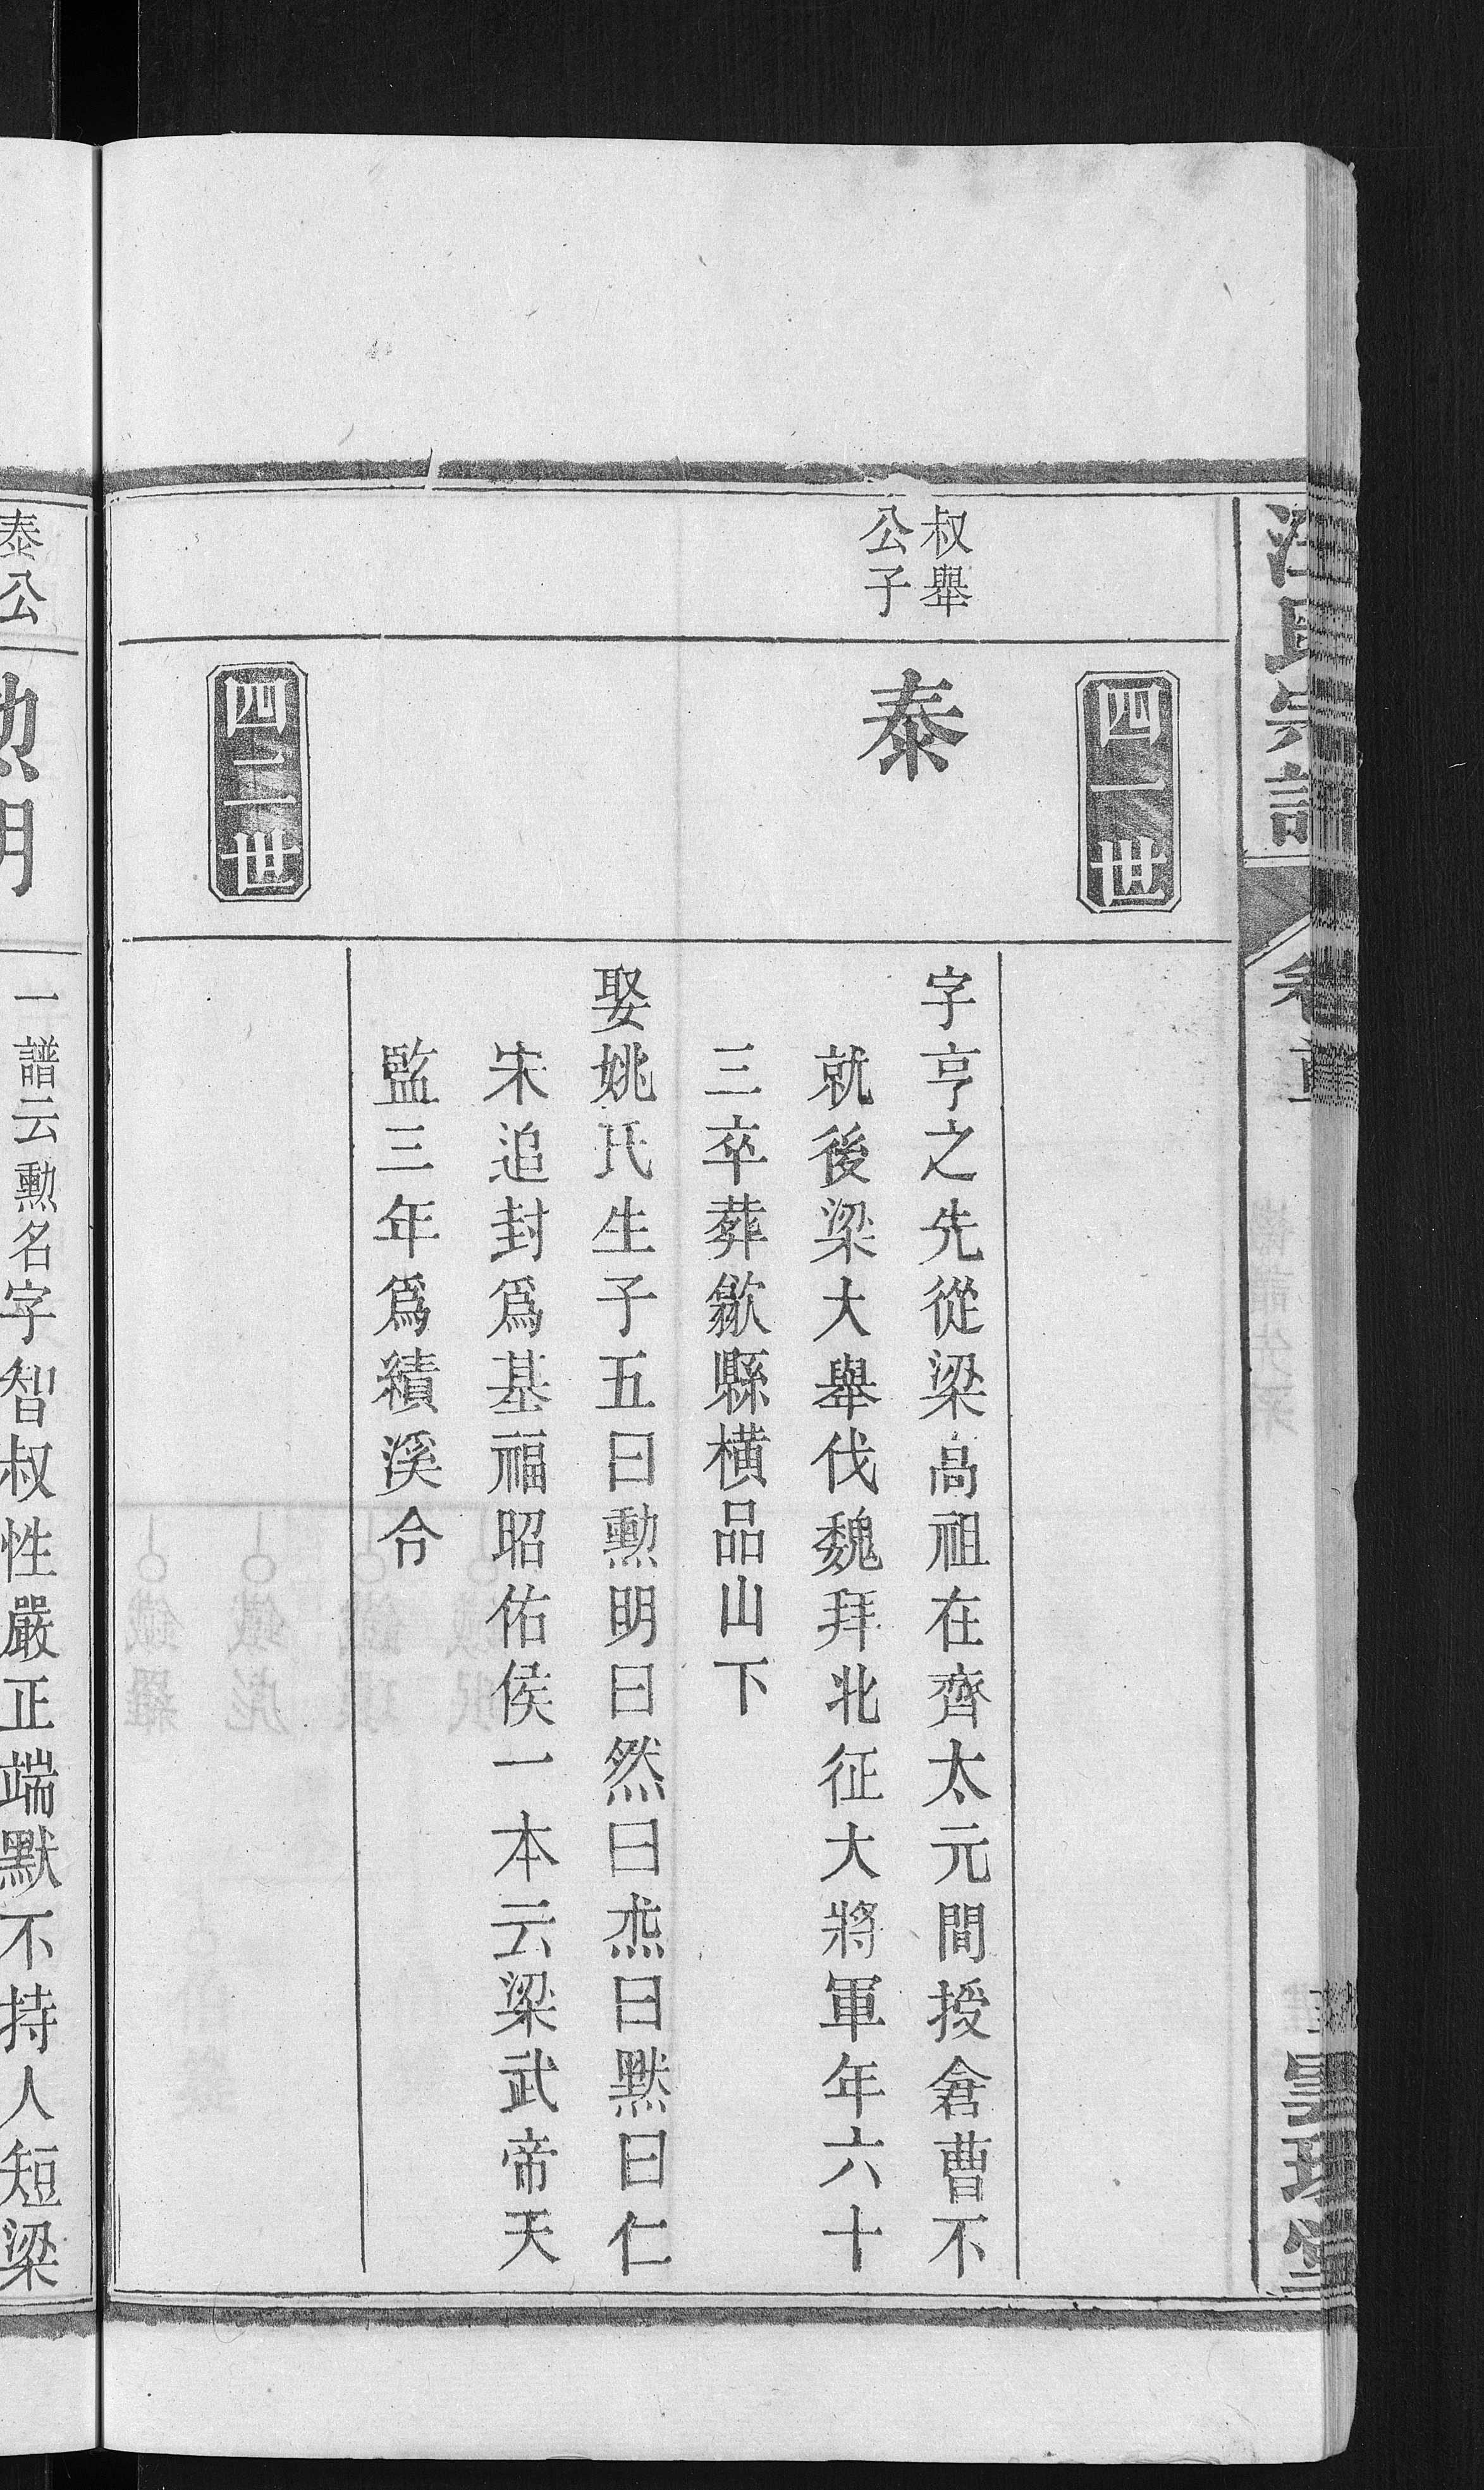 汪氏宗譜
四一世
叔舉
公子
泰
字亨之先從梁高祖在齊太元間授倉曹不
就後梁大舉伐魏拜北征大將軍年六十
三卒葬歙縣橫品山下
娶姚氏生子五曰勲明曰然曰烋曰黙曰仁
宋追封爲基福昭佑侯一本云梁武帝天
監三年爲績溪令
四二世
泰公
勲明
一譜云勲名字智叔性嚴正端默不持人短梁